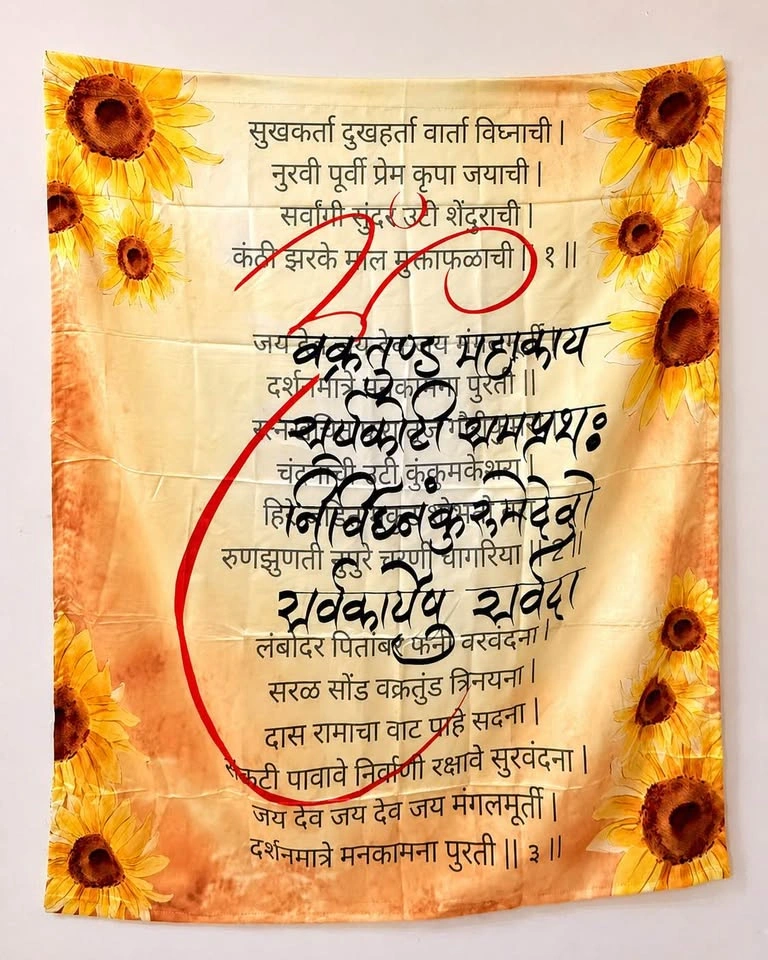 सुखकर्ता दुखहर्ता वार्ता विघ्नाची |
नुरवी पूर्वी प्रेम कृपा जयाची |
सर्वांगी सुंदर उटी शेंदुराची |
कंठी झरके माल मुक्ताफळाची || १ ||
जय
वक्रतुण्ड महाकाय
दर्शनमात्रे मनकामना पुरती ||
सूर्यकोटी समप्रभ:
चंदनाची उटी कुंकुमकेशरा |
निर्विघ्नं कुरुमेदेवो
रुणझुणती नुपुरे चरणी घागरिया || २ ||
सर्वकार्येषु सर्वदा
लंबोदर पितांबर फनी वरवंदना |
सरळ सोंड वक्रतुंड त्रिनयना |
दास रामाचा वाट पाहे सदना |
संकटी पावावे निर्वाणी रक्षावे सुरवंदना |
जय देव जय देव जय मंगलमूर्ती |
दर्शनमात्रे मनकामना पुरती || ३ ||